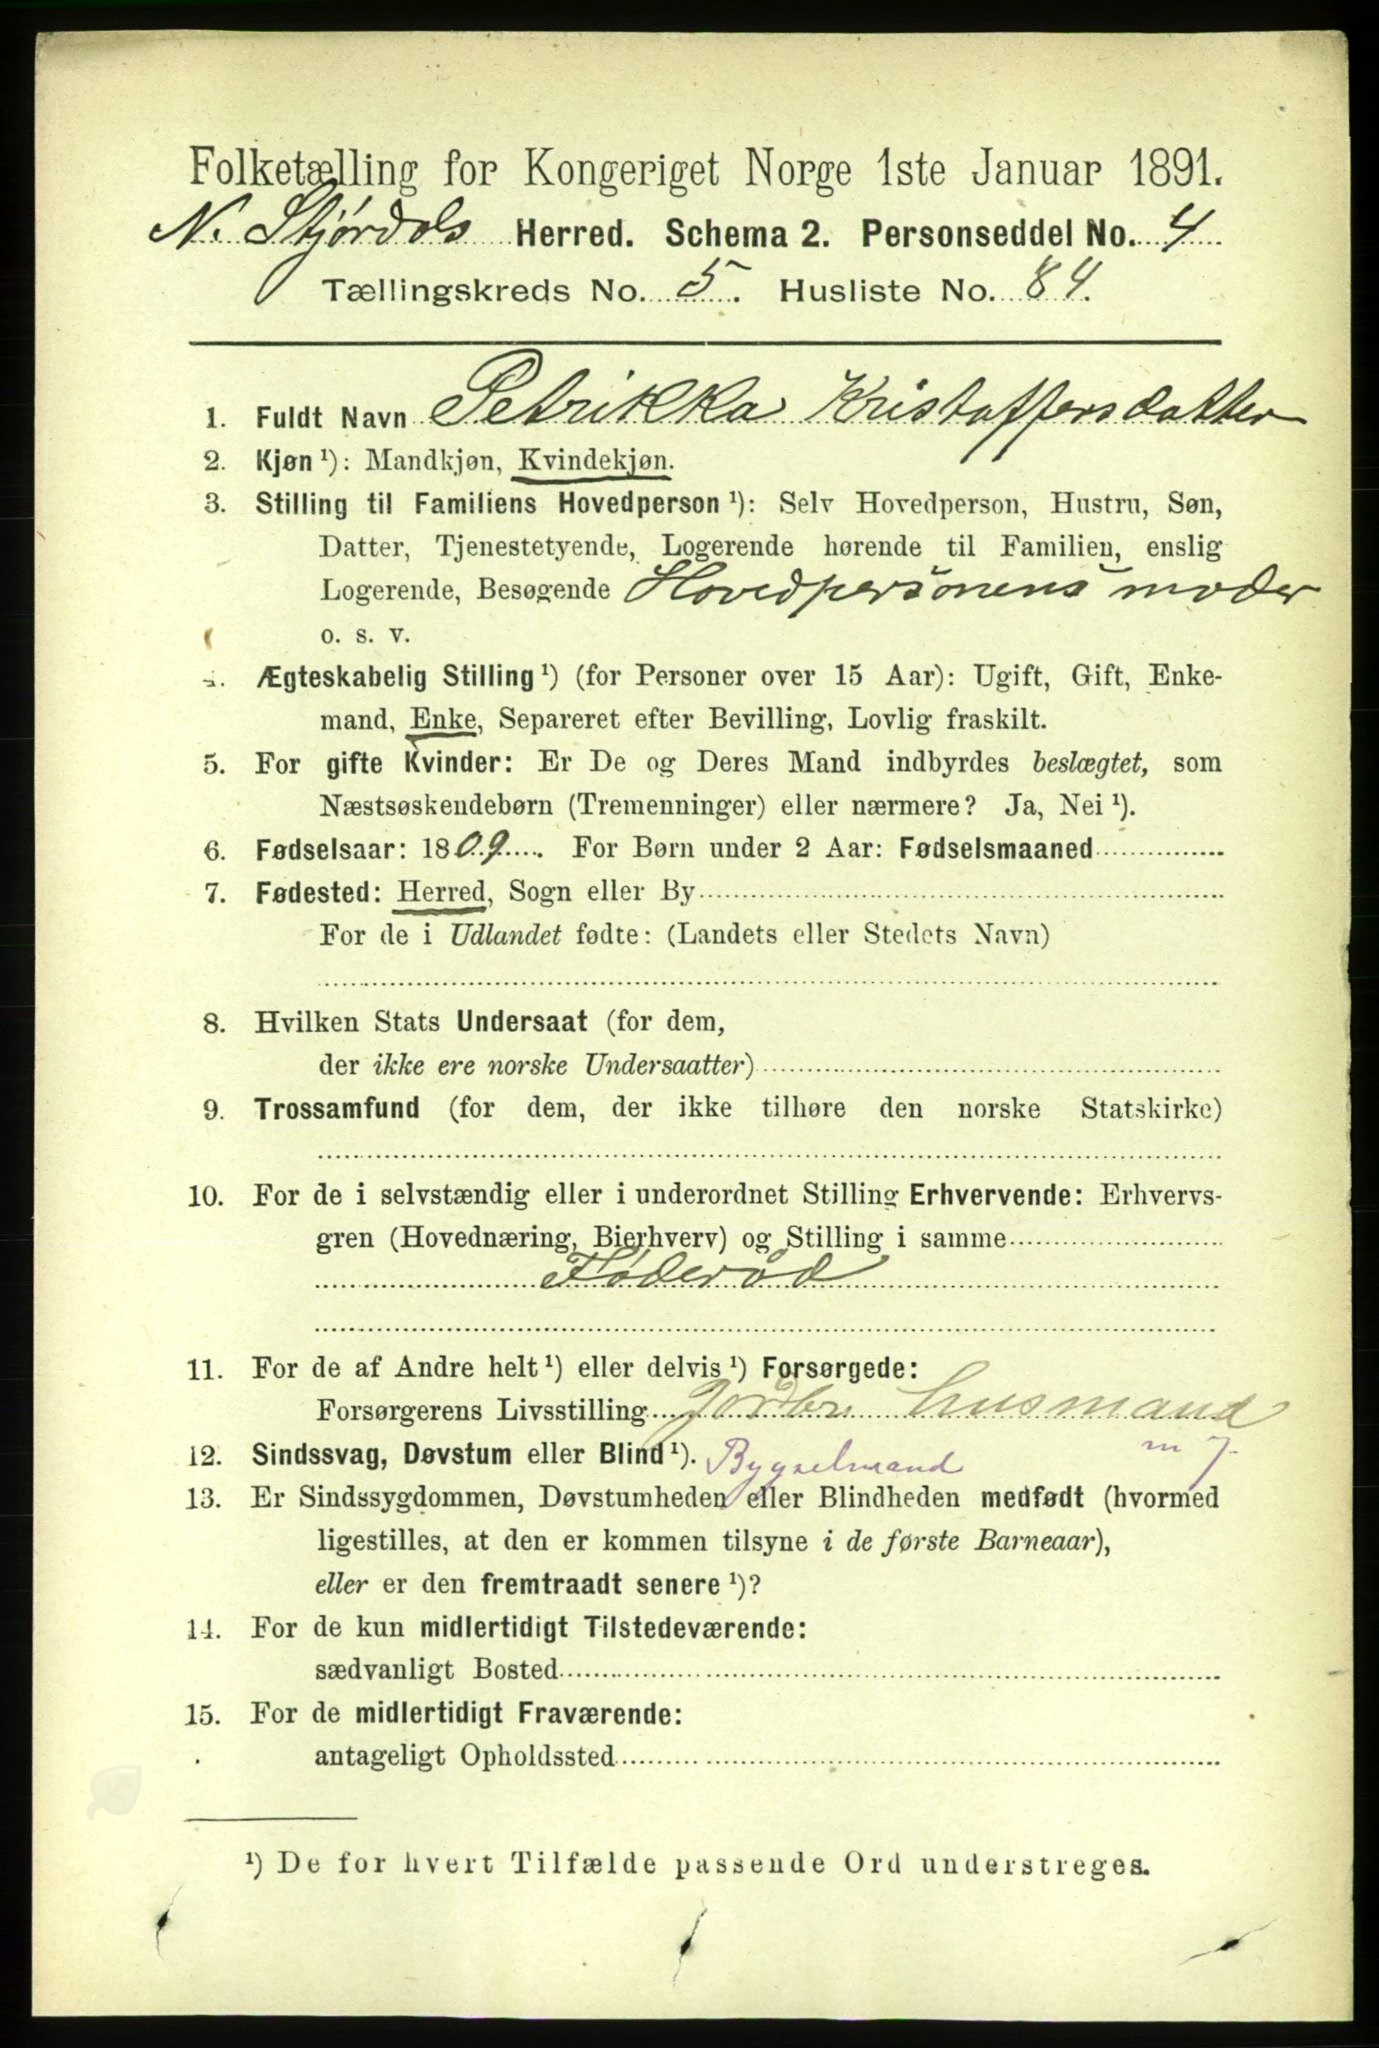 Folketælling for Kongeriget Norge 1ste Januar 1891.
N. Stjørdals Herred. Schema 2. Personseddel No. 4
Tællingskreds No. 5. Husliste No. 84.
1. Fuldt Navn Petrikka Kristoffersdatter
2. Kjøn ¹): Mandkjøn, Kvindekjøn.
3. Stilling til Familiens Hovedperson ¹): Selv Hovedperson, Hustru, Søn,
Datter, Tjenestetyende, Logerende hørende til Familien, enslig
Logerende, Besøgende Hovedpersonens moder
o. s. v.
4. Ægteskabelig Stilling ¹) (for Personer over 15 Aar): Ugift, Gift, Enke-
mand, Enke, Separeret efter Bevilling, Lovlig fraskilt.
5. For gifte Kvinder: Er De og Deres Mand indbyrdes beslægtet, som
Næstsøskendebørn (Tremenninger) eller nærmere? Ja, Nei ¹).
6. Fødselsaar: 1809. For Børn under 2 Aar: Fødselsmaaned
7. Fødested: Herred, Sogn eller By
For de i Udlandet fødte: (Landets eller Stedets Navn)
8. Hvilken Stats Undersaat (for dem,
der ikke ere norske Undersaatter)
9. Trossamfund (for dem, der ikke tilhøre den norske Statskirke)
10. For de i selvstændig eller i underordnet Stilling Erhvervende: Erhvervs-
gren (Hovednæring, Bierhverv) og Stilling i samme
Føderåd
11. For de af Andre helt ¹) eller delvis ¹) Forsørgede:
Forsørgerens Livsstilling Jordbr. husmand
12. Sindssvag, Døvstum eller Blind ¹). Bygselmand m J.
13. Er Sindssygdommen, Døvstumheden eller Blindheden medfødt (hvormed
ligestilles, at den er kommen tilsyne i de første Barneaar),
eller er den fremtraadt senere ¹)?
14. For de kun midlertidigt Tilstedeværende:
sædvanligt Bosted
15. For de midlertidigt Fraværende:
antageligt Opholdssted
¹) De for hvert Tilfælde passende Ord understreges.